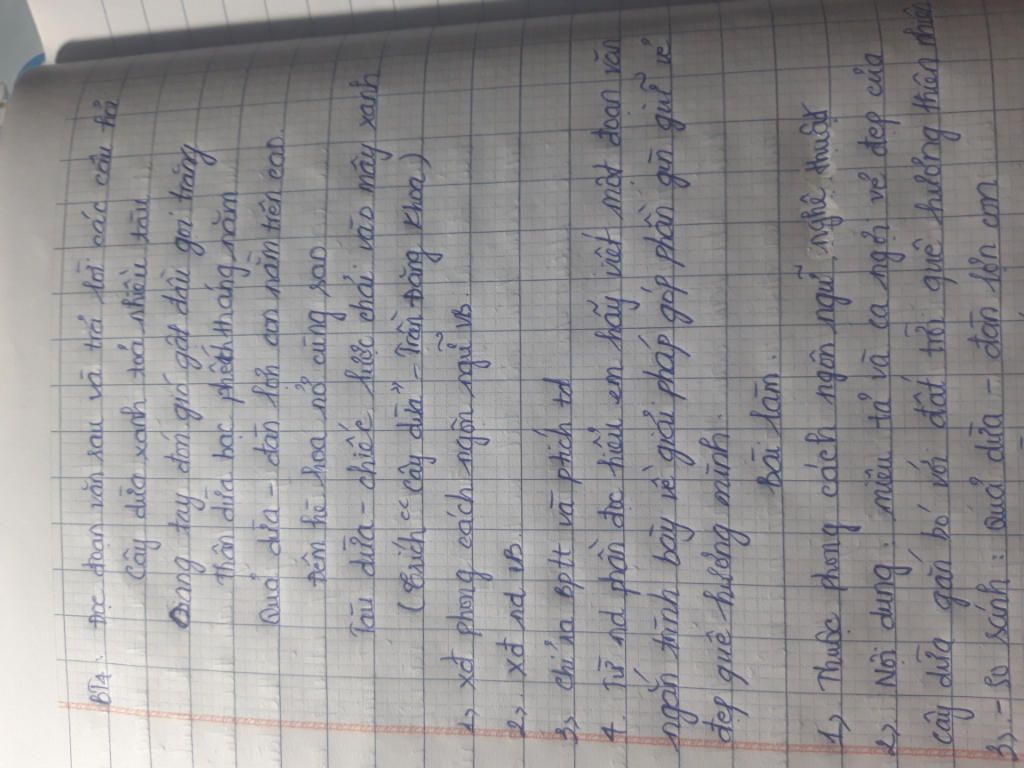 BT4. Đọc đoạn văn sau và trả lời các câu hỏi
Cây dừa xanh toả nhiều tàu
Dang tay đón gió gật đầu gọi trăng
Thân dừa bạc phếch tháng năm
Quả dừa - đàn lợn con nằm trên cao.
Đêm hè hoa nở cùng sao
Tàu dừa - chiếc lược chải vào mây xanh
(Trích << Cây dừa" - Trần Đăng Khoa)
1, xđ phong cách ngôn ngữ VB.
2, xđ nd VB.
3, chỉ ra BPTT và ptích td
4. Từ nd phần đọc hiểu em hãy viết một đoạn văn
ngắn trình bày về giải pháp góp phần gìn giữ vẻ
đẹp quê hương mình.
Bài làm.
1, Thuộc phong cách ngôn ngữ nghệ thuật
2, Nội dung: miêu tả và ca ngợi vẻ đẹp của
cây dừa gắn bó với đất trời quê hương thiên nhiên
3, - So sánh: Quả dừa - đàn lợn con